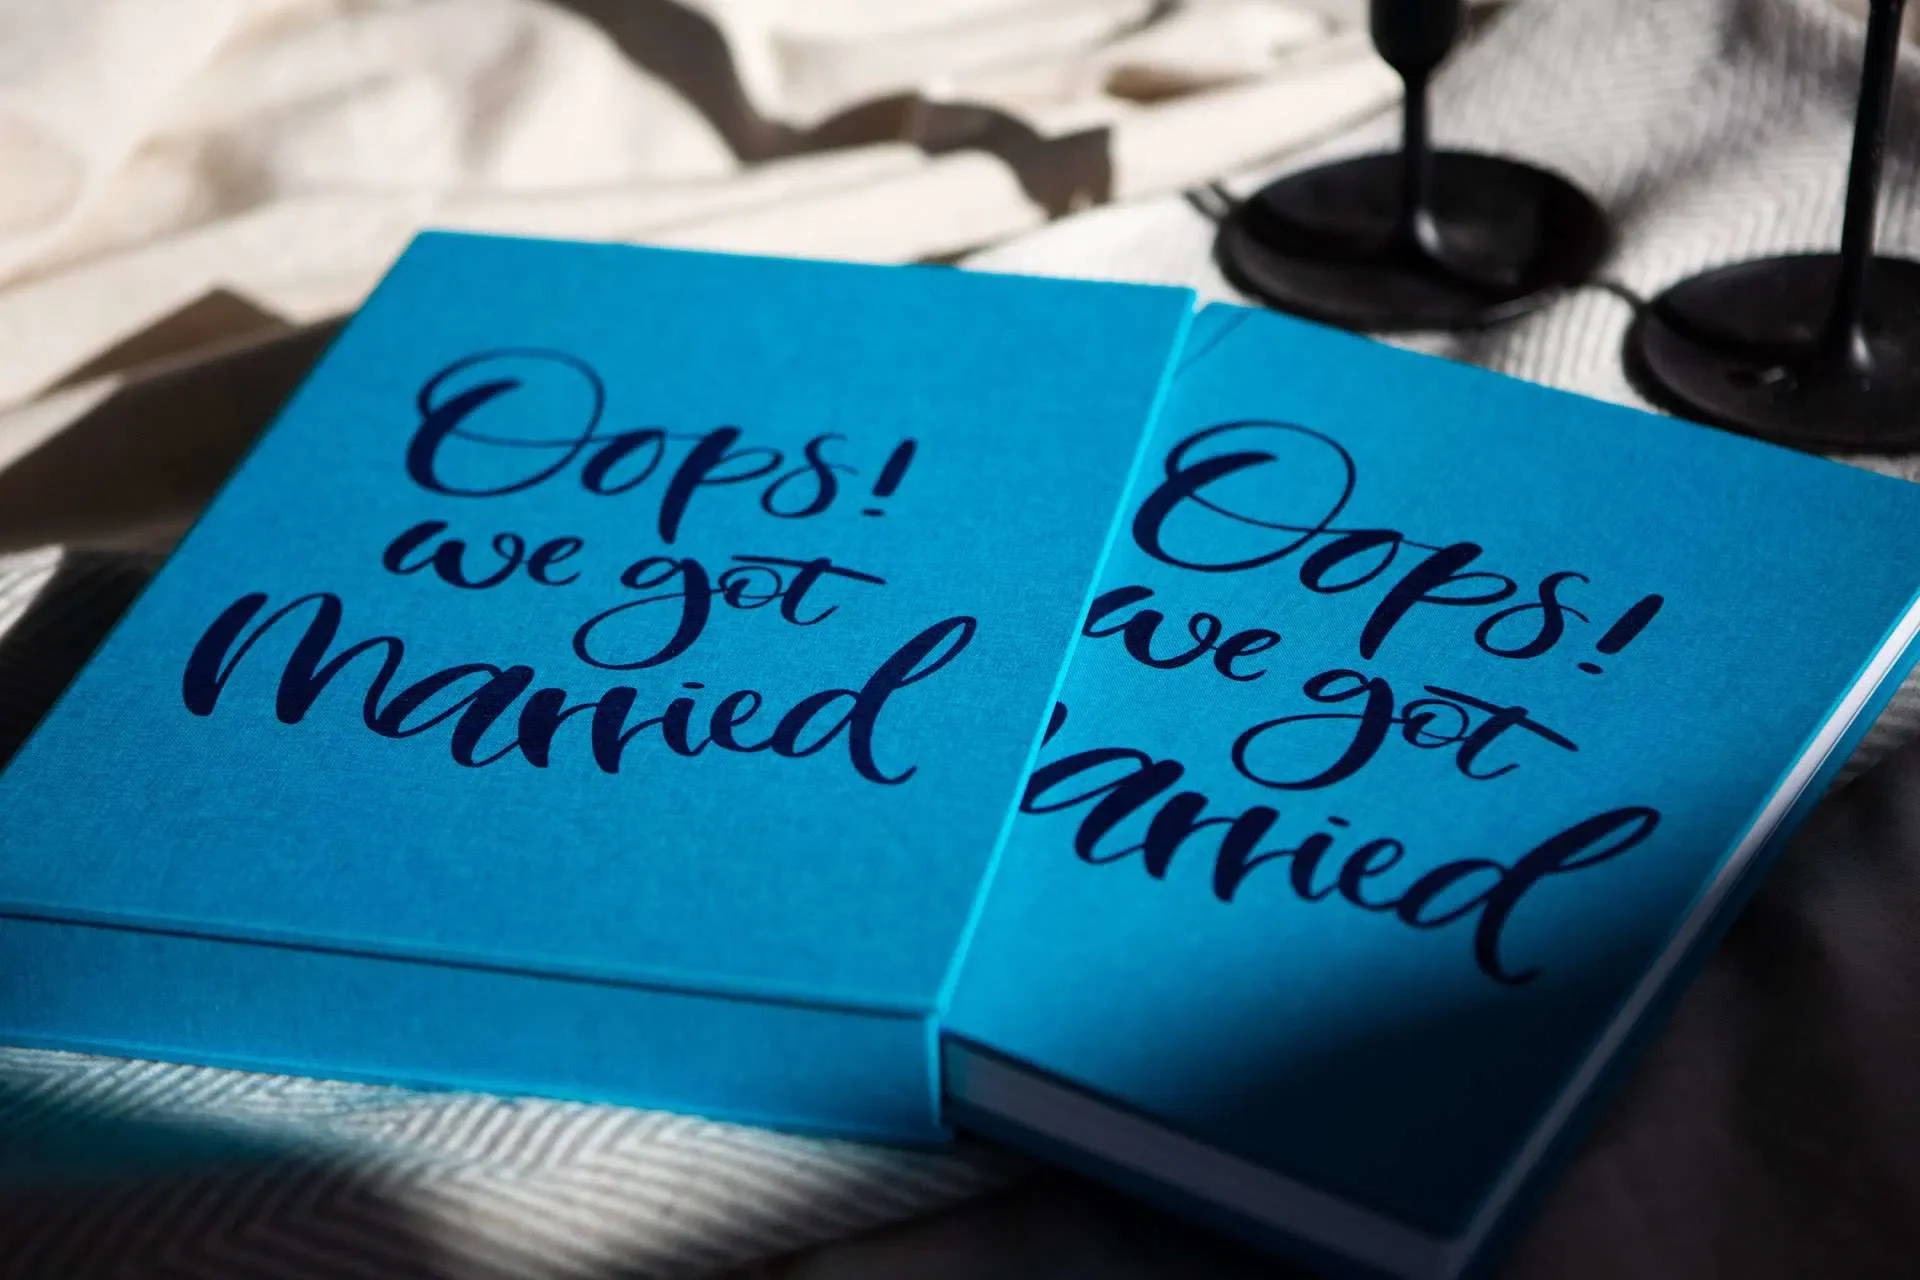 Oops!
we got
Married
Oops!
we got
arried